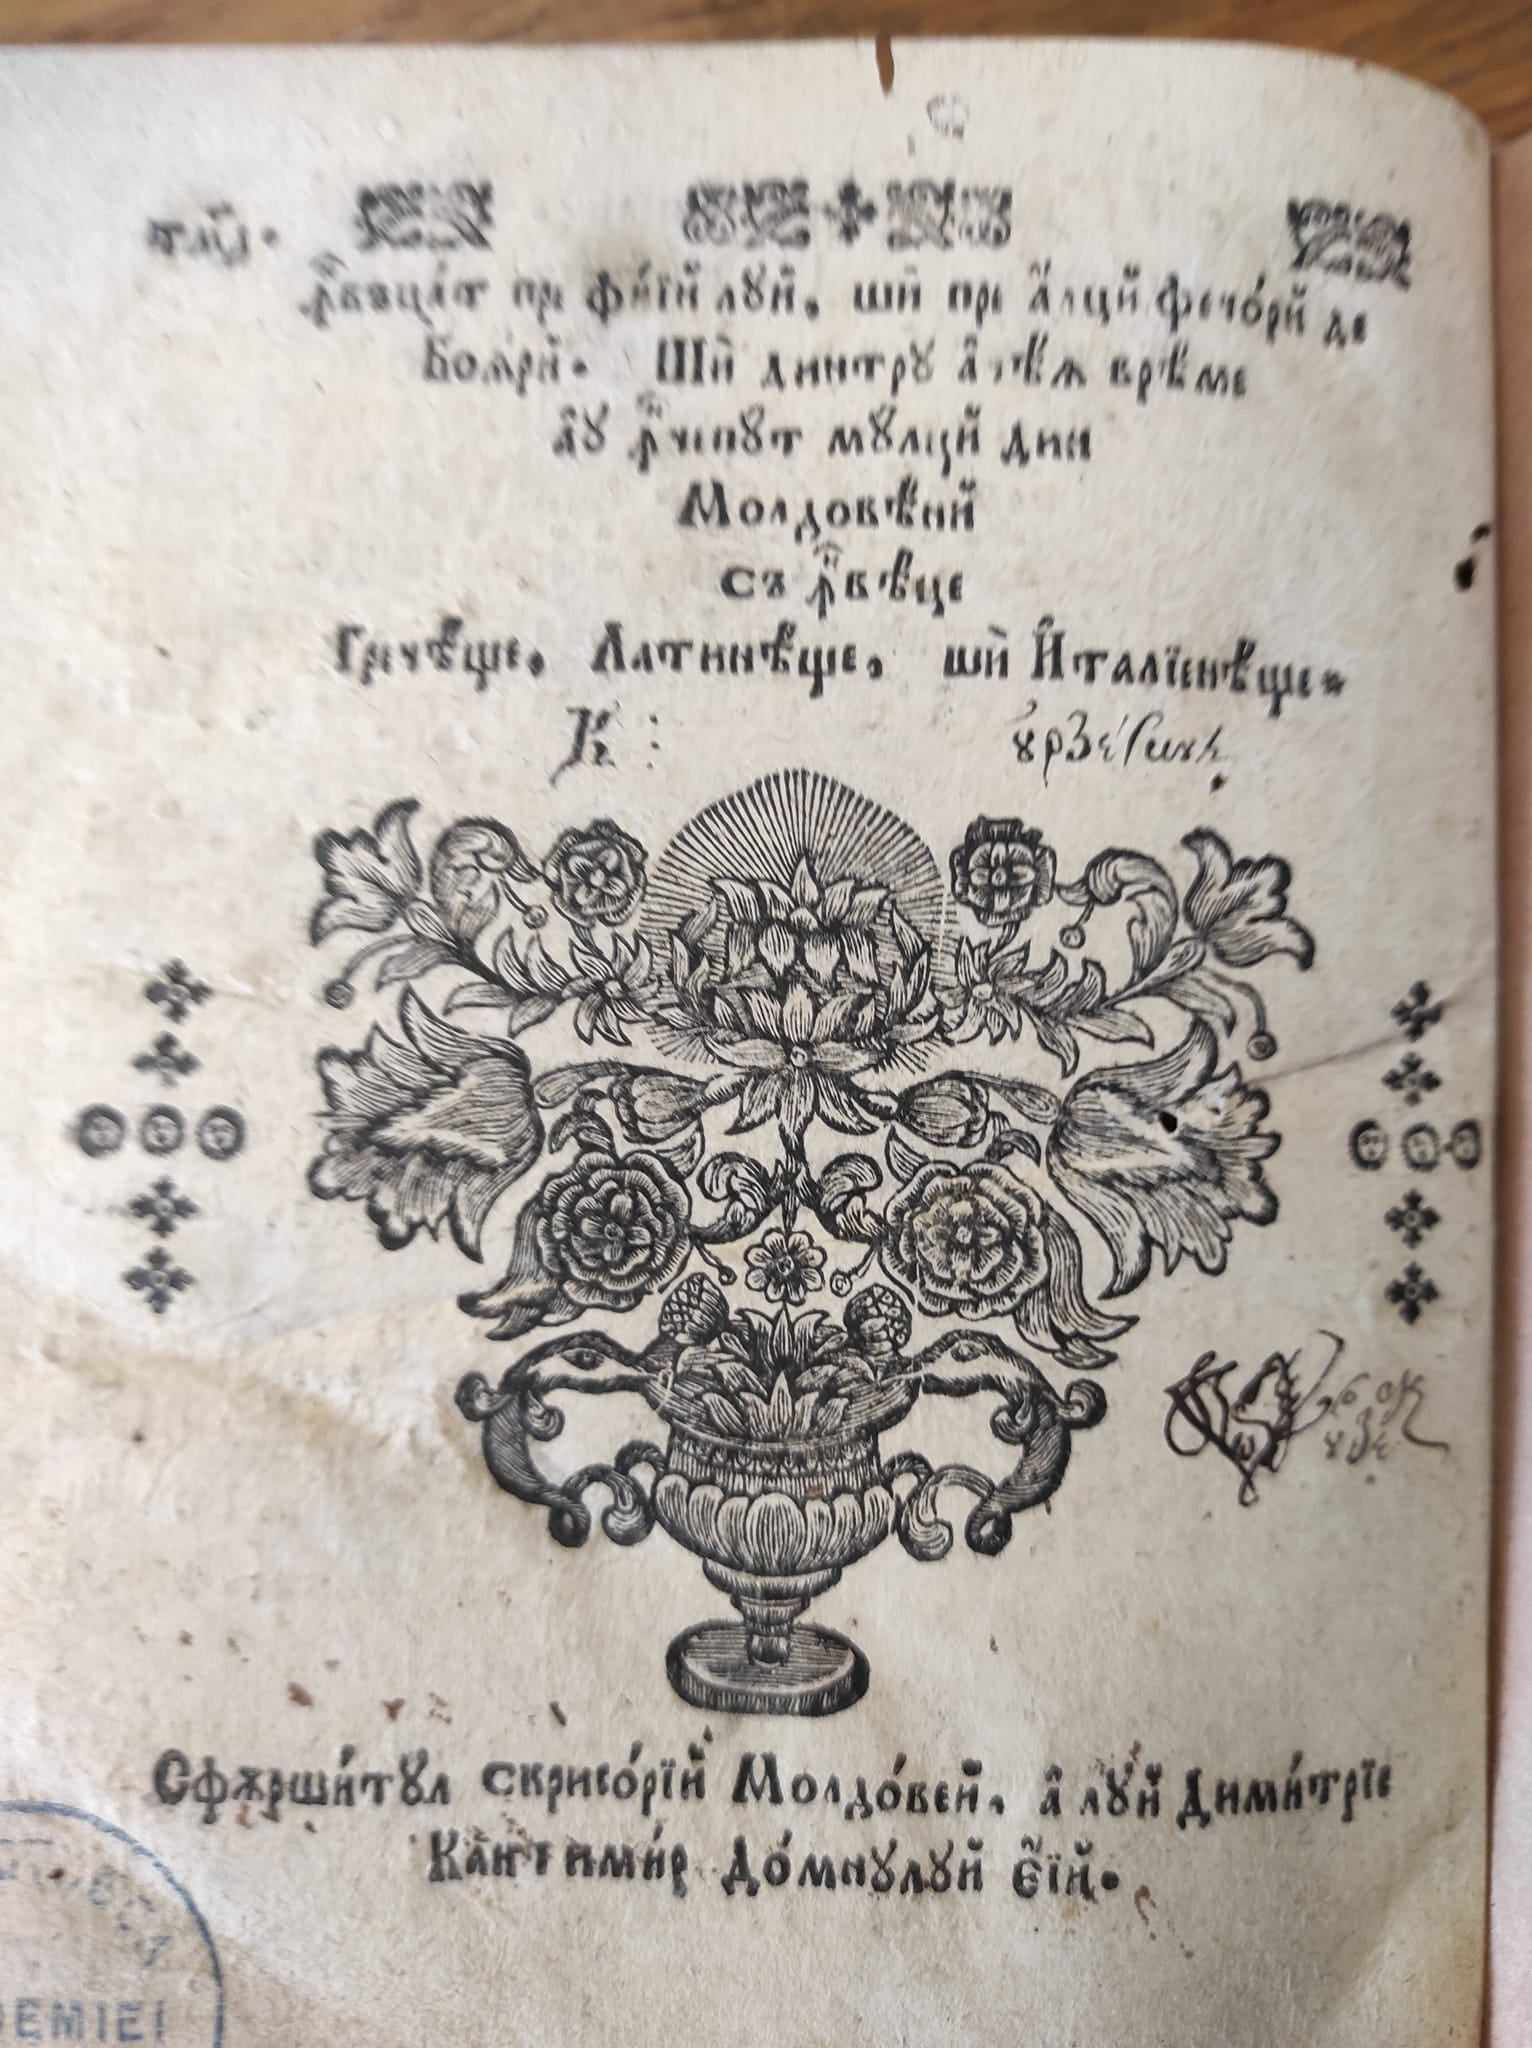 ꙟвъцат пре фїи́й лу́й. ши пре а҆лцй фечо́рй де
Боѧрй. Шѝ динтру ачѣѧ врѣме
ау ꙟчепꙋт мꙋлцй дин
Молдовѣнй
съ ꙟвѣце
Гречѣще. Латинѣще. шѝ И҆талїенѣще.
К :
Сфѫрши́тꙋл скрисо́рїй Молдо́вей. а҆ лꙋ́й Дими́трїе
Кантими́р До́мнꙋлꙋй Є҆й.
DEMIEI